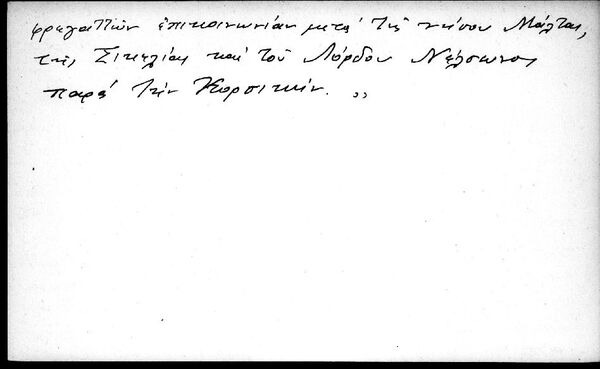 φρεγαττῶν ἐπικοινωνίαν μετὰ τῆς νήσου Μάλτας,
τῆς Σικελίας καὶ τοῦ Λόρδου Νέλσωνος
παρὰ τὴν Κορσικήν. ,,